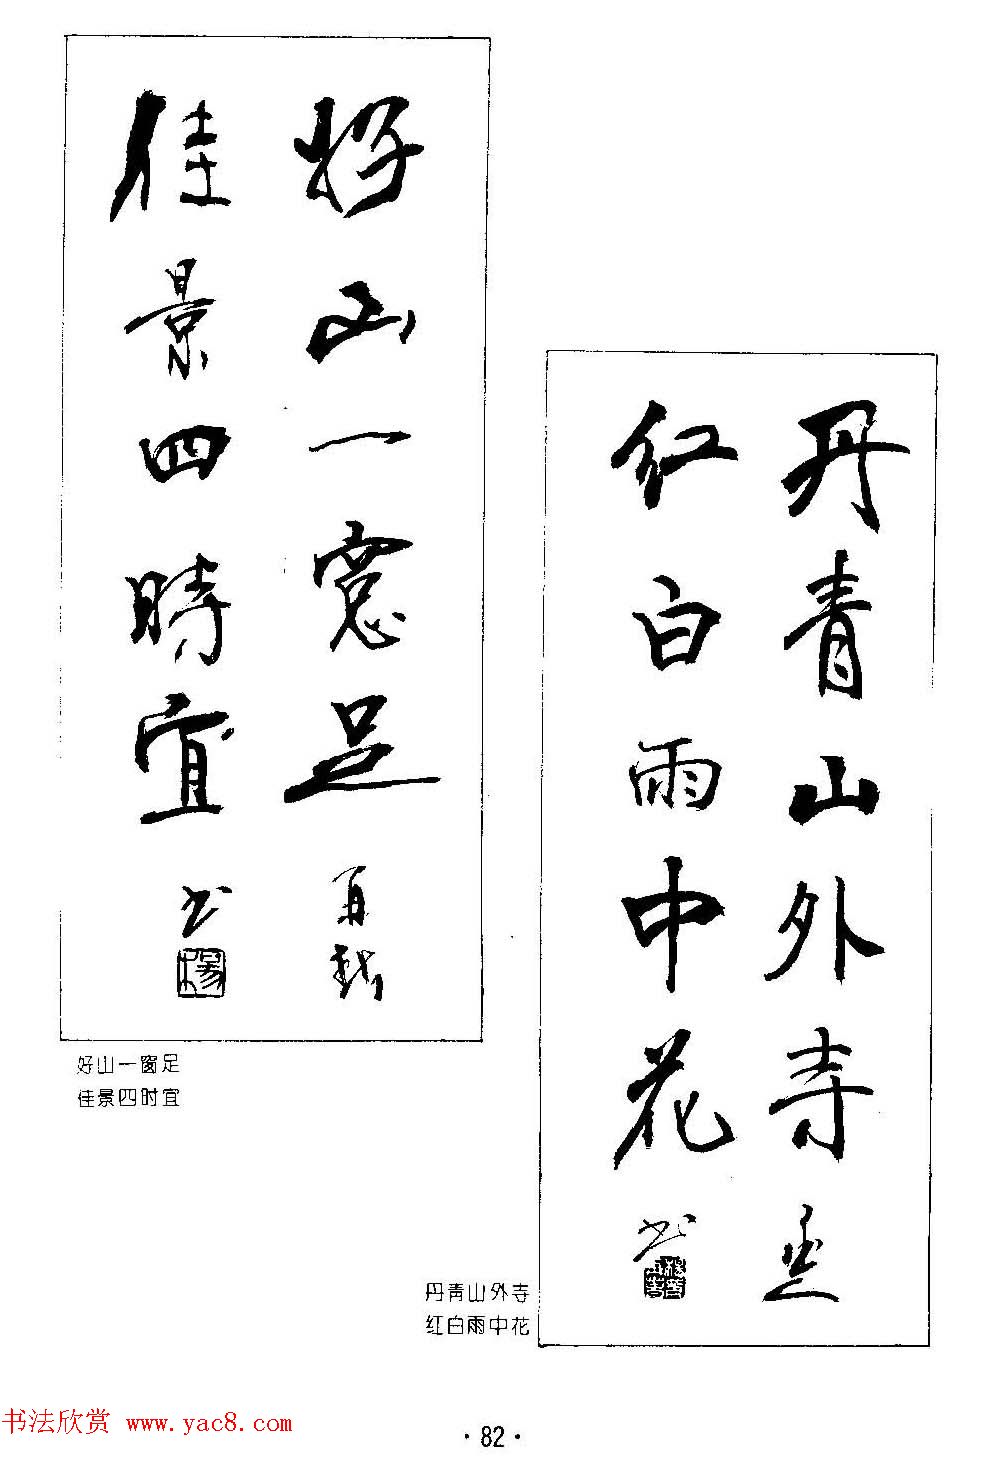 好山一窓足
佳景四時宜
书
好山一窗足
佳景四时宜
丹青山外寺
红白雨中花
书
丹青山外寺
红白雨中花
书法欣赏 www.yac8.com
·82·